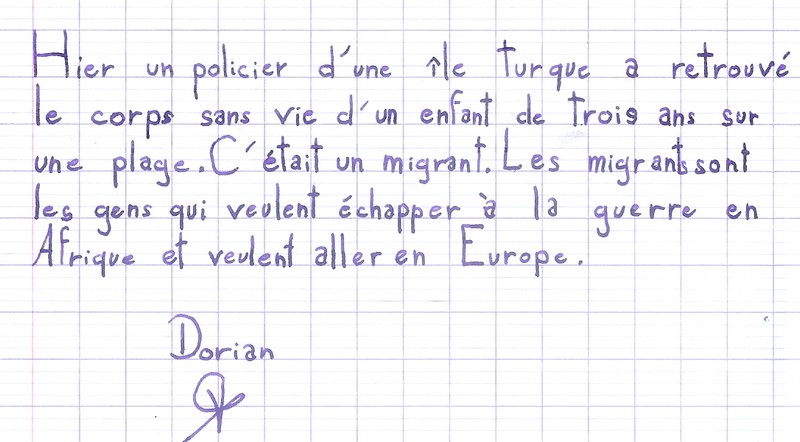 Hier un policier d'une île turque a retrouvé
le corps sans vie d'un enfant de trois ans sur
une plage. C'était un migrant. Les migrants sont
les gens qui veulent échapper à la guerre en
Afrique et veulent aller en Europe.
Dorian